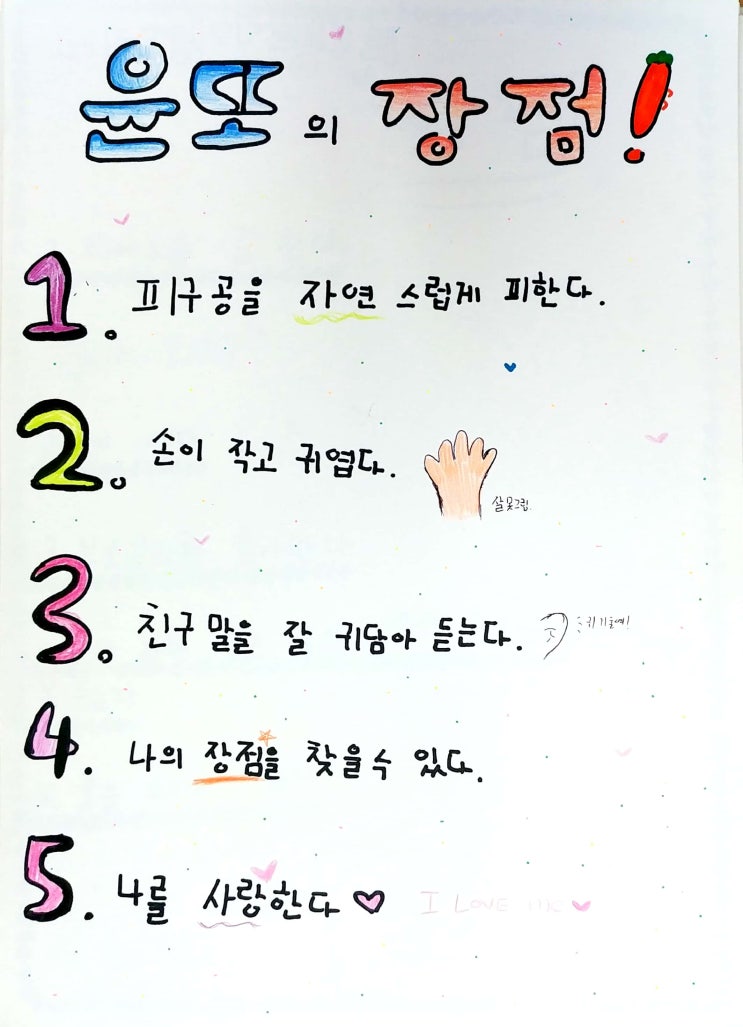 윤또의 장점!
1. 피구공을 자연스럽게 피한다.
2. 손이 작고 귀엽다.
살못그림.
3. 친구 말을 잘 귀담아 듣는다.
4. 나의 장점을 찾을 수 있다.
5. 나를 사랑한다♡ I LOVE me